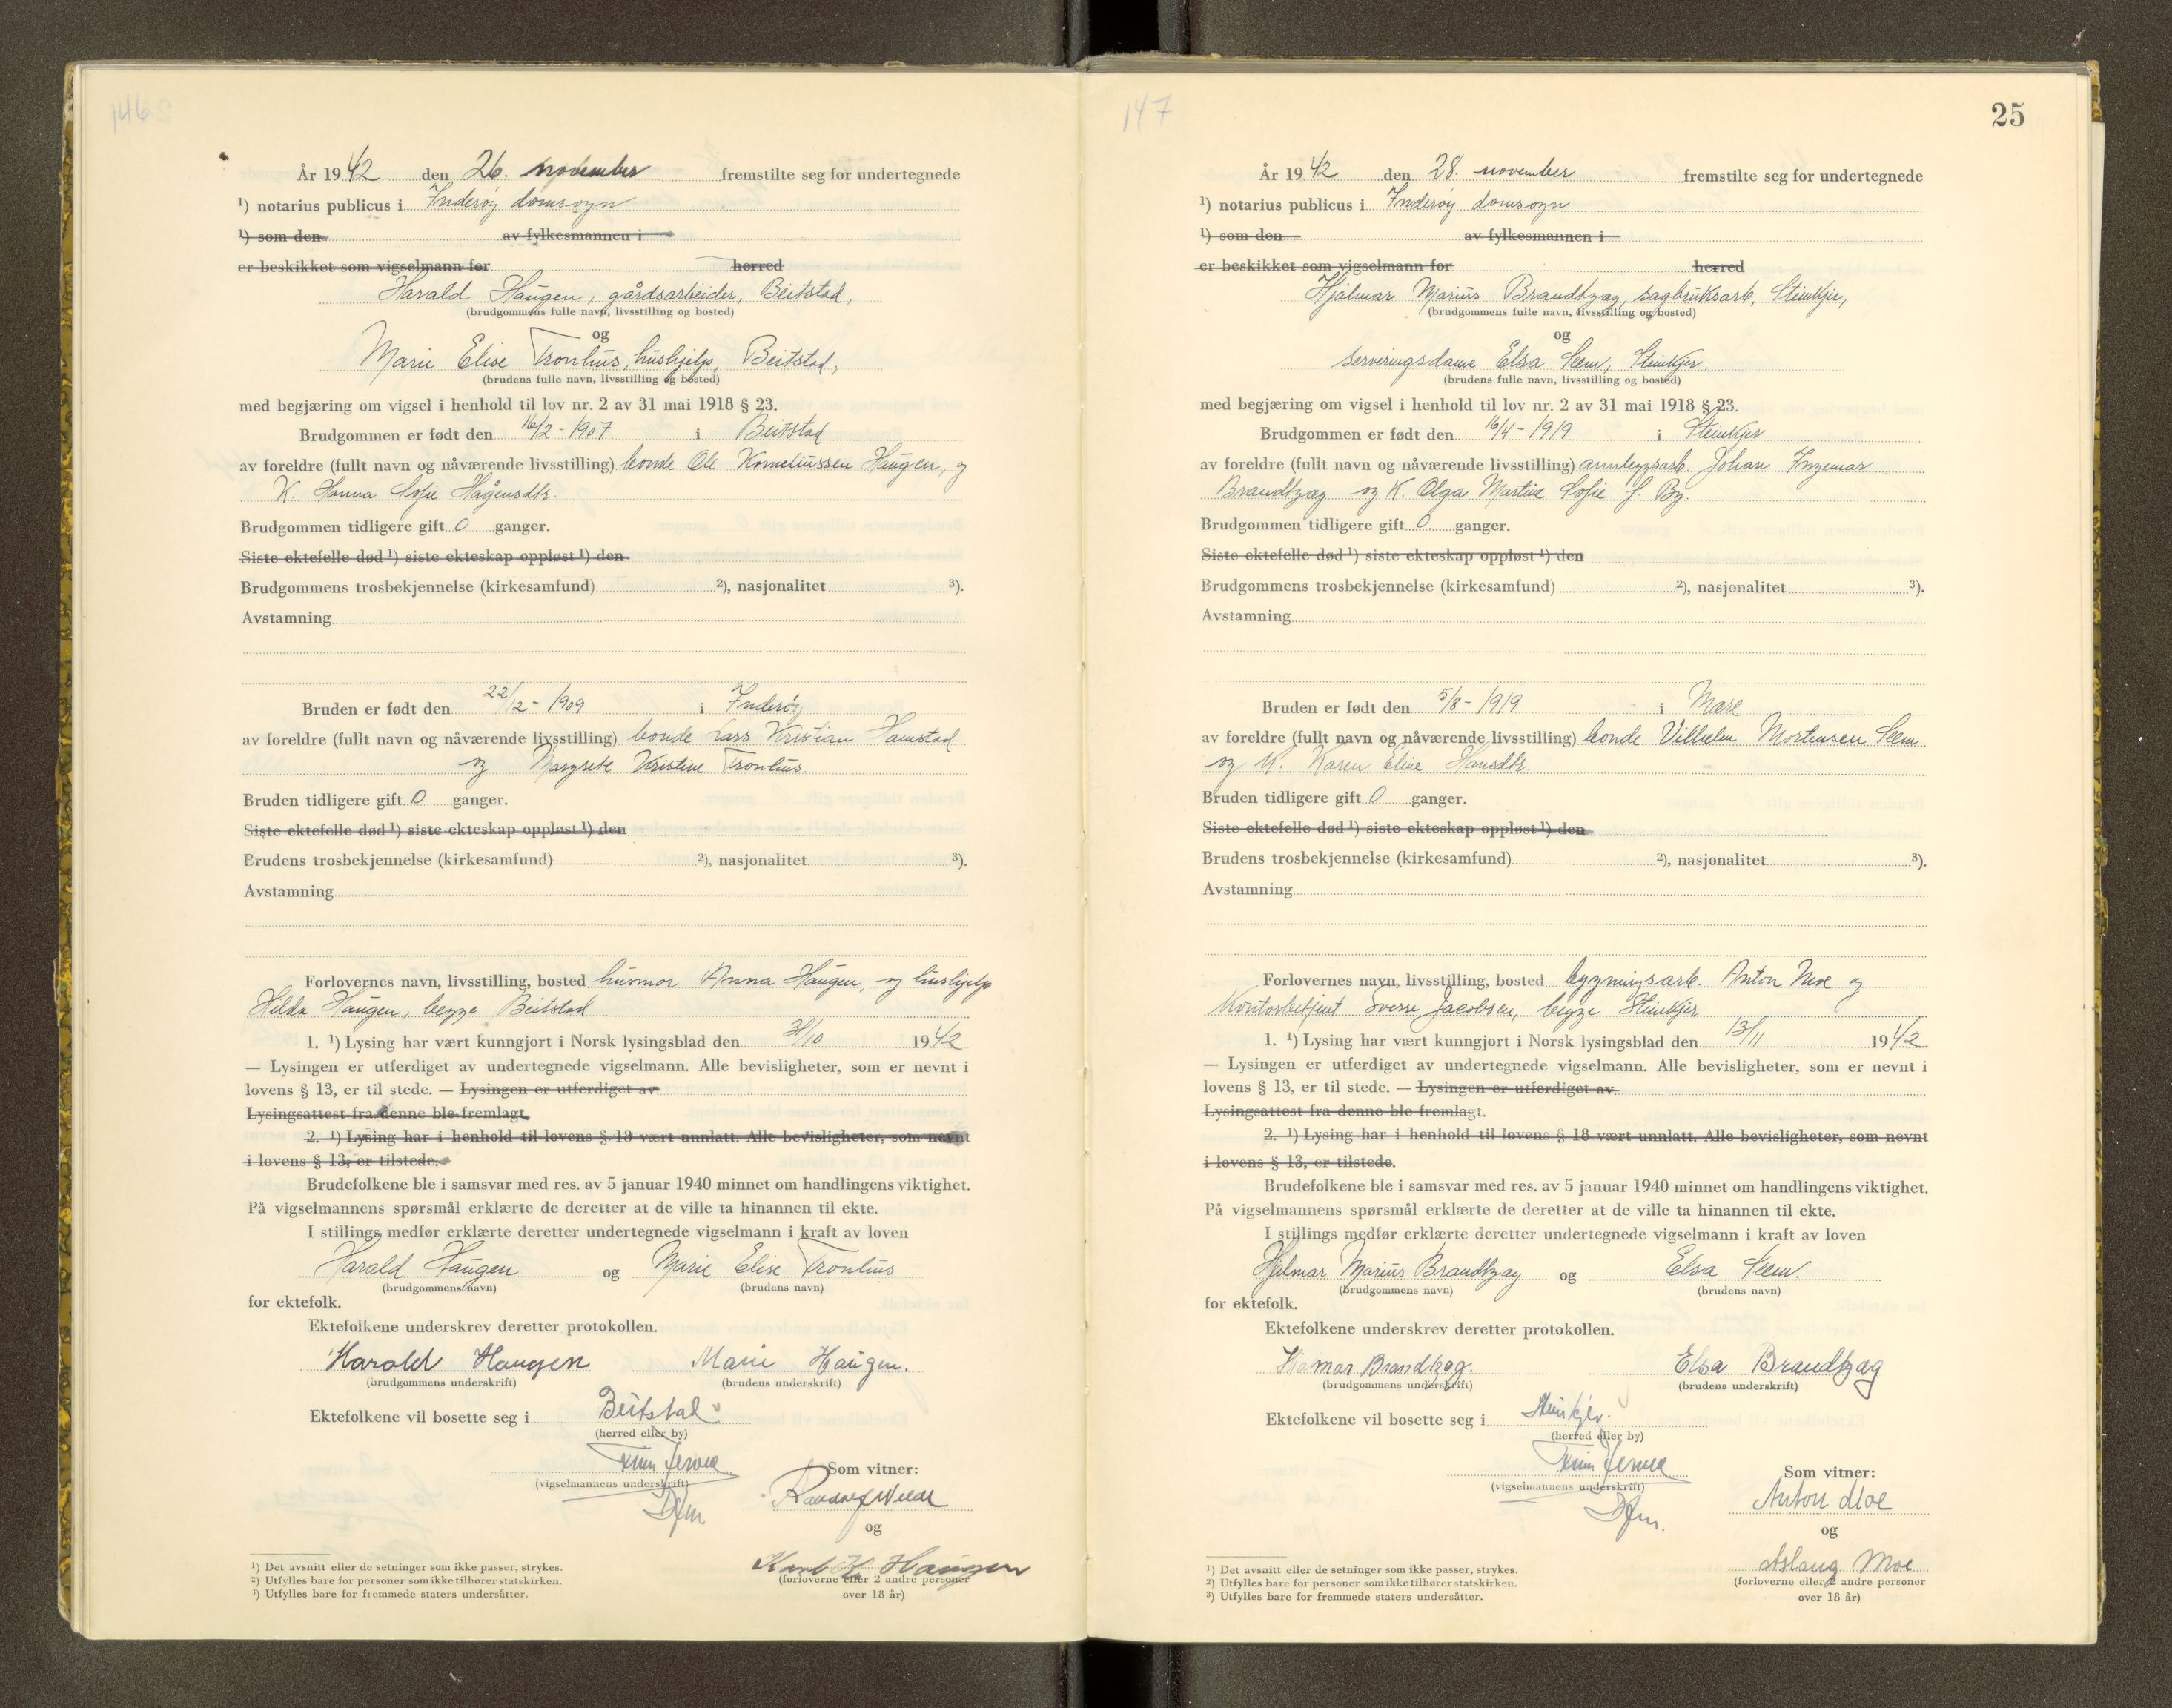 146
År 1942 den 26. november fremstilte seg for undertegnede
¹) notarius publicus i Inderøy domsogn
¹) som den av fylkesmannen i
er beskikket som vigselmann for herred
Harald Haugen, gårdsarbeider, Beitstad,
(brudgommens fulle navn, livsstilling og bosted)
og
Marie Elise Tronhus, hushjelp, Beitstad,
(brudens fulle navn, livsstilling og bosted)
med begjæring om vigsel i henhold til lov nr. 2 av 31 mai 1918 § 23.
Brudgommen er født den 16/2 - 1907 i Beitstad
av foreldre (fullt navn og nåværende livsstilling) bonde Ole Korneliussen Haugen, og
K. Hanna Sofie Hågensdtr.
Brudgommen tidligere gift 0 ganger.
Siste ektefelle død ¹) siste ekteskap oppløst ¹) den
Brudgommens trosbekjennelse (kirkesamfund) ²), nasjonalitet ³).
Avstamning
Bruden er født den 22/2 - 1909 i Inderøy
av foreldre (fullt navn og nåværende livsstilling) bonde Lars Kristian Hamstad
og Margrete Kristine Tronhus.
Bruden tidligere gift 0 ganger.
Siste ektefelle død ¹) siste ekteskap oppløst ¹) den
Brudens trosbekjennelse (kirkesamfund) ²), nasjonalitet ³).
Avstamning
Forlovernes navn, livsstilling, bosted husmor Anna Haugen, og hushjelp
Hilda Haugen, begge Beitstad
1. ¹) Lysing har vært kunngjort i Norsk lysingsblad den 31/10 1942
— Lysingen er utferdiget av undertegnede vigselmann. Alle bevisligheter, som er nevnt i
lovens § 13, er til stede. — Lysingen er utferdiget av
Lysingsattest fra denne ble fremlagt.
2. ¹) Lysing har i henhold til lovens § 18 vært unnlatt. Alle bevisligheter, som nevnt
i lovens § 13, er tilstede.
Brudefolkene ble i samsvar med res. av 5 januar 1940 minnet om handlingens viktighet.
På vigselmannens spørsmål erklærte de deretter at de ville ta hinannen til ekte.
I stillings medfør erklærte deretter undertegnede vigselmann i kraft av loven
Harald Haugen og Marie Elise Tronhus
(brudgommens navn) (brudens navn)
for ektefolk.
Ektefolkene underskrev deretter protokollen.
Harald Haugen Marie Haugen.
(brudgommens underskrift) (brudens underskrift)
Ektefolkene vil bosette seg i Beitstad
(herred eller by)
Som vitner:
(vigselmannens underskrift)
Dfm
og
Karl K. Haugen
(forloverne eller 2 andre personer
over 18 år)
¹) Det avsnitt eller de setninger som ikke passer, strykes.
²) Utfylles bare for personer som ikke tilhører statskirken.
¹) Utfylles bare for fremmede staters undersåtter.
147
25
År 1942 den 28. november fremstilte seg for undertegnede
¹) notarius publicus i Inderøy domsogn
¹) som den av fylkesmannen i
er beskikket som vigselmann for herred
Hjalmar Marius Brandtzæg, sagbruksarb. Steinkjer,
(brudgommens fulle navn, livsstilling og bosted)
og
serveringsdame Elsa Seem, Steinkjer.
(brudens fulle navn, livsstilling og bosted)
med begjæring om vigsel i henhold til lov nr. 2 av 31 mai 1918 § 23.
Brudgommen er født den 16/4 - 1919 i Steinkjer
av foreldre (fullt navn og nåværende livsstilling) annleggsarb. Johan Ingemar
Brandtzæg og K. Olga Martine Sofie f. By.
Brudgommen tidligere gift 0 ganger.
Siste ektefelle død ¹) siste ekteskap oppløst ¹) den
Brudgommens trosbekjennelse (kirkesamfund) ²), nasjonalitet ³).
Avstamning
Bruden er født den 5/8 - 1919 i Mære
av foreldre (fullt navn og nåværende livsstilling) bonde Vilhelm Mortensen Seem
og K. Karen Eline Hansdtr.
Bruden tidligere gift 0 ganger.
Siste ektefelle død ¹) siste ekteskap oppløst ¹) den
Brudens trosbekjennelse (kirkesamfund) ²), nasjonalitet ³).
Avstamning
Forlovernes navn, livsstilling, bosted bygningsarb. Anton Moe og
Kontorbetjent Sverre Jacobsen, begge Steinkjer
1. ¹) Lysing har vært kunngjort i Norsk lysingsblad den 13/11 1942
— Lysingen er utferdiget av undertegnede vigselmann. Alle bevisligheter, som er nevnt i
lovens § 13, er til stede. — Lysingen er utferdiget av
Lysingsattest fra denne ble fremlagt.
2. ¹) Lysing har i henhold til lovens § 18 vært unnlatt. Alle bevisligheter, som nevnt
i lovens § 13, er tilstede.
Brudefolkene ble i samsvar med res. av 5 januar 1940 minnet om handlingens viktighet.
På vigselmannens spørsmål erklærte de deretter at de ville ta hinannen til ekte.
I stillings medfør erklærte deretter undertegnede vigselmann i kraft av loven
Hjalmar Marius Brandtzæg og Elsa Seem.
(brudgommens navn) (brudens navn)
for ektefolk.
Ektefolkene underskrev deretter protokollen.
Brandtzæg. Elsa Brandtzæg
(brudgommens underskrift) (brudens underskrift)
Ektefolkene vil bosette seg i Steinkjer.
(herred eller by)
Som vitner:
(vigselmannens underskrift)
Dfm.
Anton Moe
og
Aslaug Moe
(forloverne eller 2 andre personer
over 18 år)
¹) Det avsnitt eller de setninger som ikke passer, strykes.
²) Utfylles bare for personer som ikke tilhører statskirken.
³) Utfylles bare for fremmede staters undersåtter.